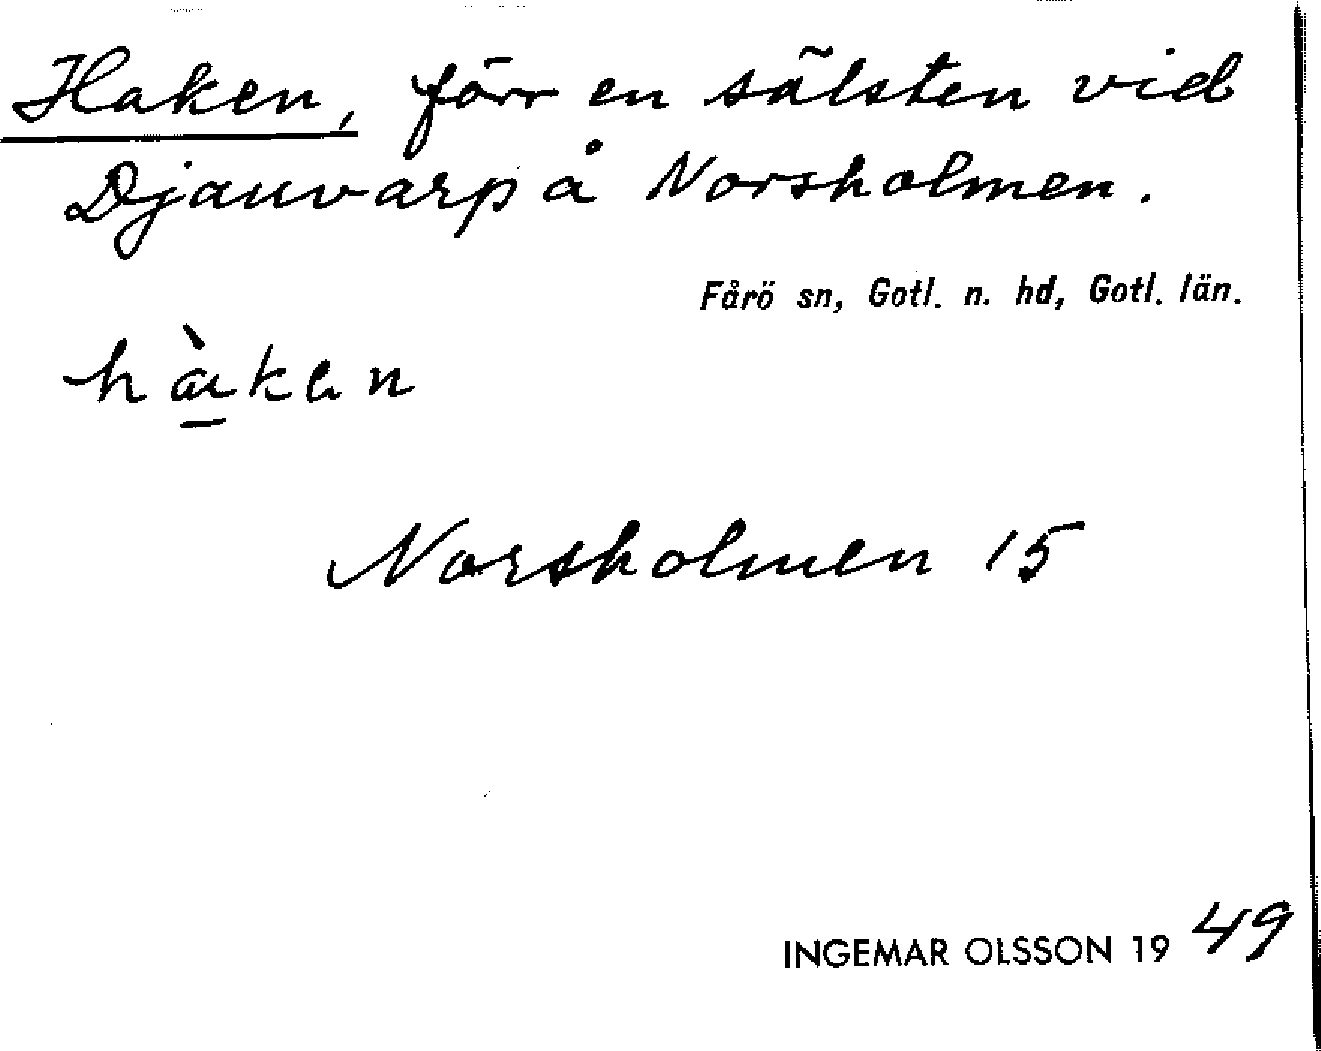 Haken, förr en sälsten vid
Djauvarp å Norsholmen.
Fårö sn, Gotl. n. hd, Gotl. län.
hà̱kɐn
Norsholmen 15
INGEMAR OLSSON 1949